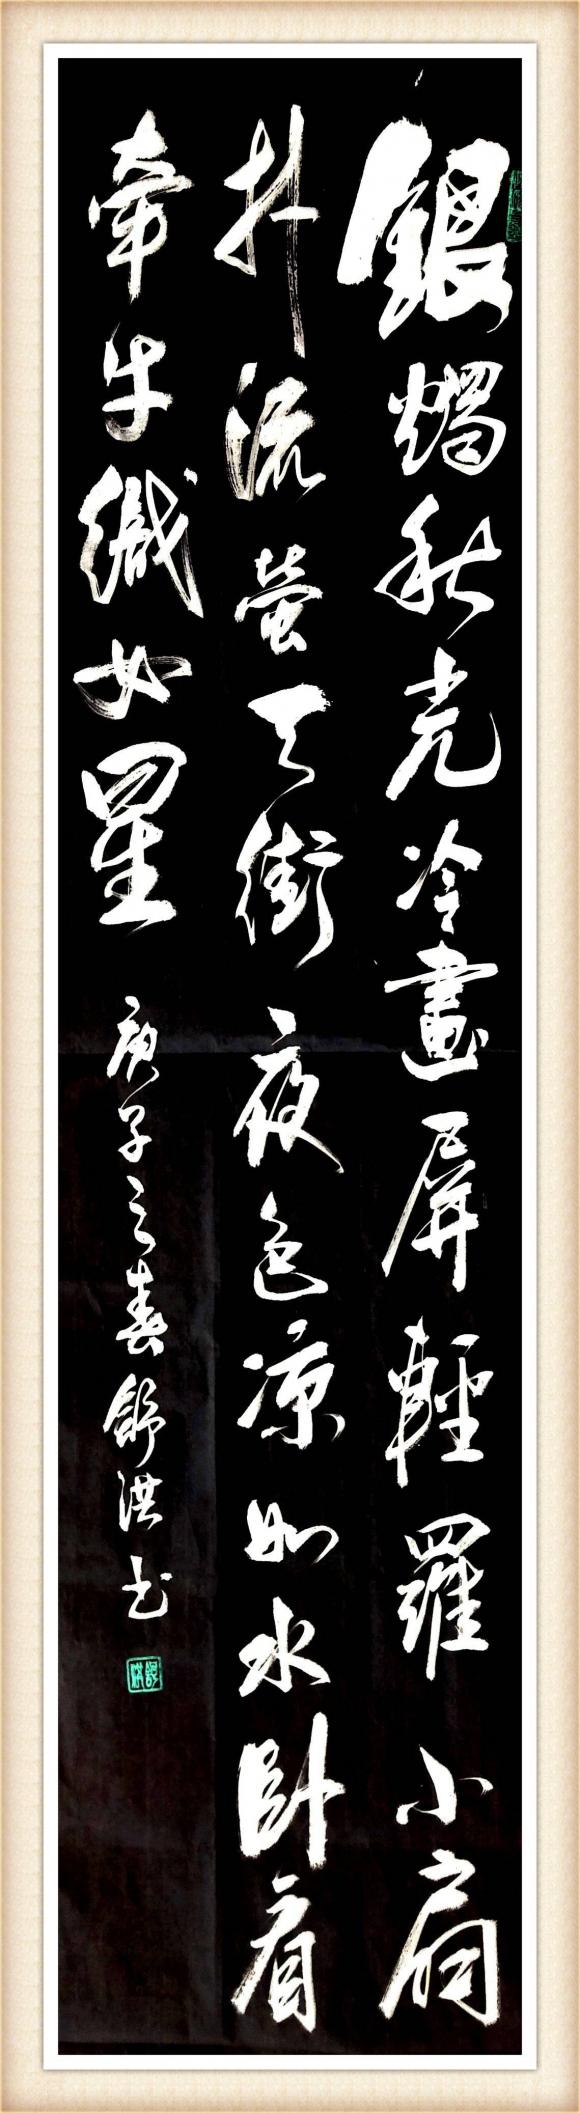 銀燭秋光冷畫屏輕羅小扇
扑流萤天街夜色凉如水卧看
牽牛織女星
庚子之春舒洪书